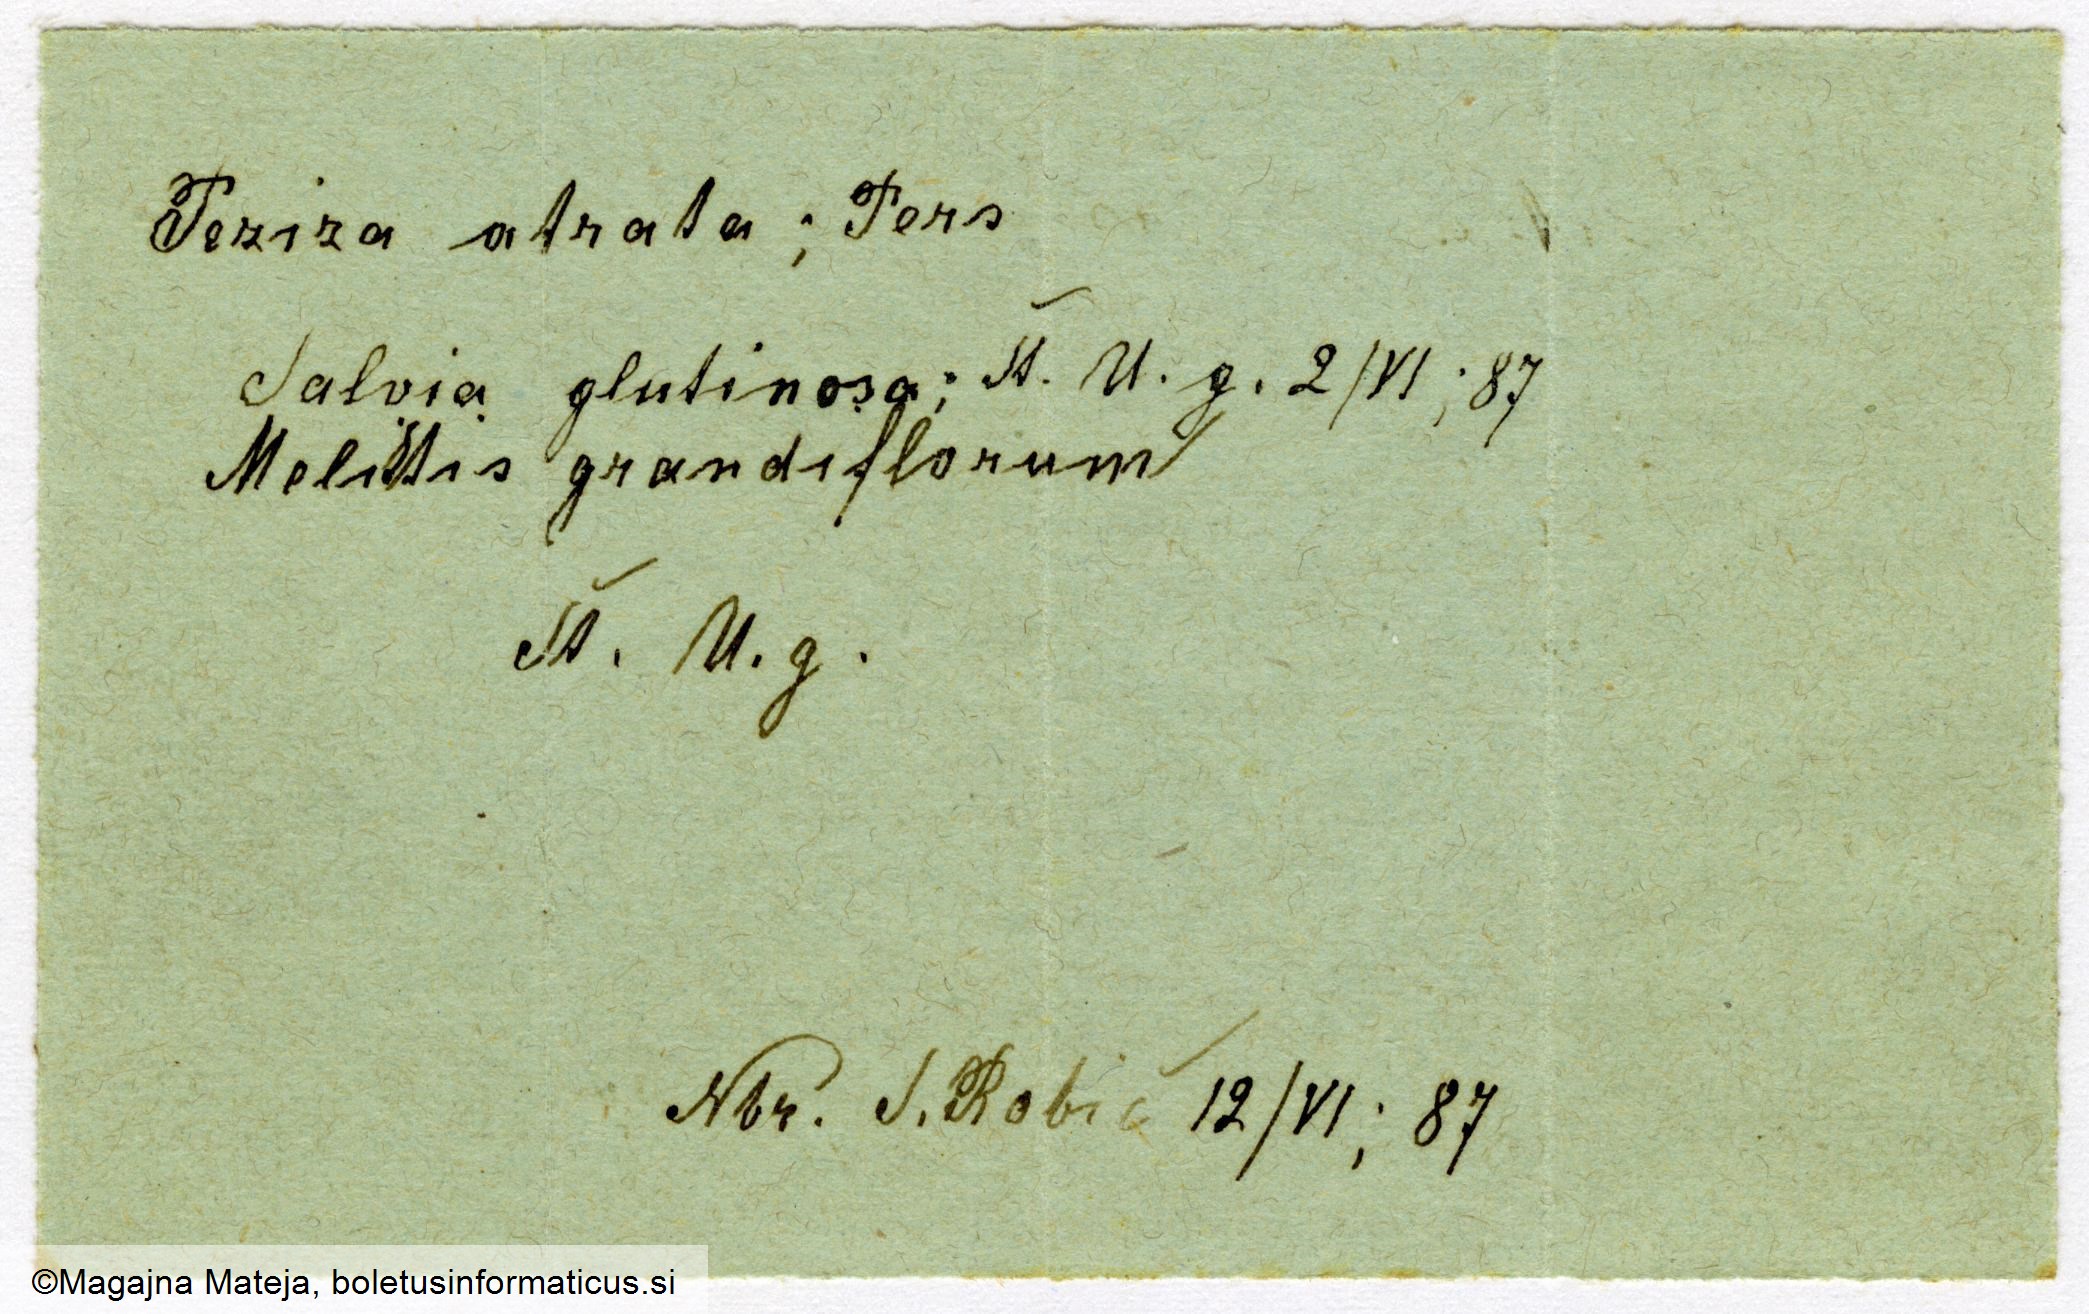 Peziza atrata; Pers
Salvia glutinosa; Št. U. g. 2/VI; 87
Melittis grandiflorum
Št. U. g.
Nbr. S. Robič 12/VI; 87
©Magajna Mateja, boletusinformaticus.si